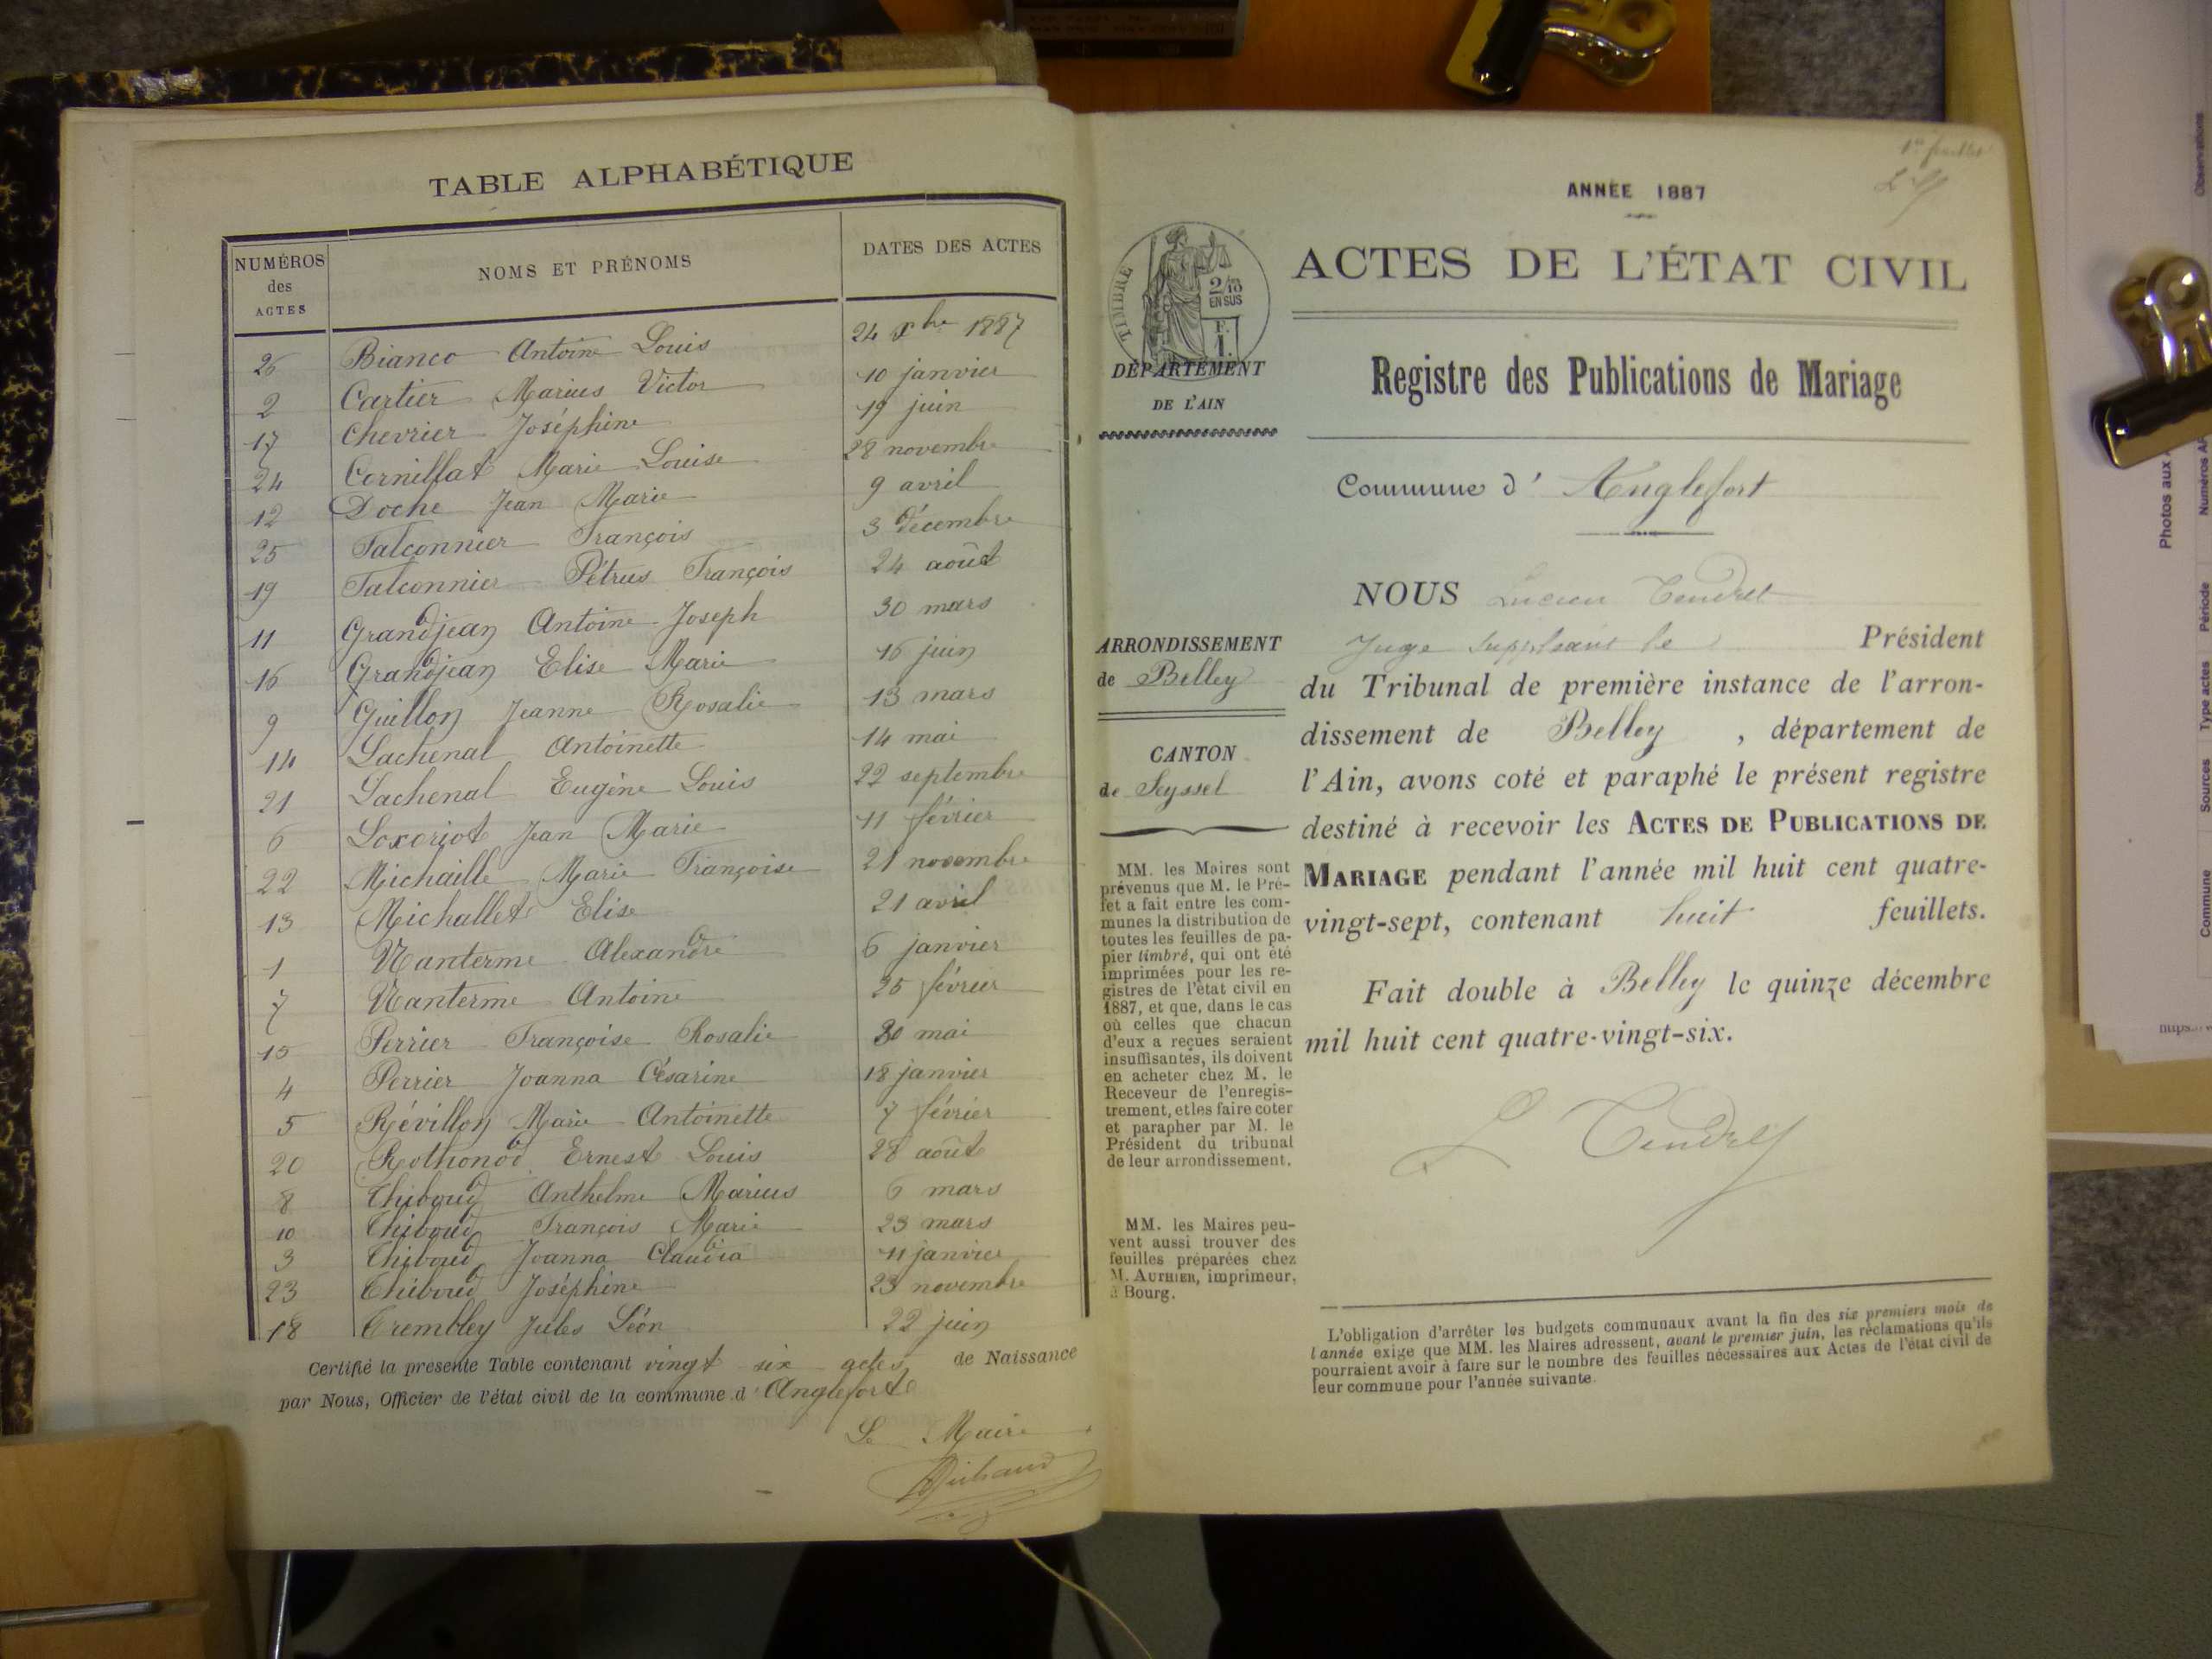 TABLE ALPHABÉTIQUE
NUMÉROS des ACTES NOMS ET PRÉNOMS DATES DES ACTES
26 Bianco Antoine Louis 24 Xbre 1887
2 Cartier Marius Victor 10 janvier
17 Chevrier Joséphine 19 juin
24 Cornillat Marie Louise 28 novembre
12 Doche Jean Marie 9 avril
25 Falconnier François 3 décembre
19 Falconnier Pétrus François 24 août
11 Grandjean Antoine Joseph 30 mars
16 Grandjean Elise Marie 16 juin
9 Guillon Jeanne Rosalie 13 mars
14 Lachenal Antoinette 14 mai
21 Lachenal Eugène Louis 22 septembre
6 Loxoriot Jean Marie 11 février
22 Michaille Marie Françoise 21 novembre
13 Michallet Elise 21 avril
1 Nanterme Alexandre 6 janvier
7 Nanterme Antoine 25 février
15 Perrier Françoise Rosalie 20 mai
4 Perrier Joanna Césarine 18 janvier
5 Révillon Marie Antoinette 7 février
20 Rothonod Ernest Louis 28 août
8 Thiboud Anthelme Marius 6 mars
10 Thiboud François Marie 23 mars
3 Thiboud Joanna Claudia 11 janvier
23 Thiboud Joséphine 23 novembre
18 Trembley Jules Léon 22 juin
Certifié la présente Table contenant vingt six actes de Naissance
par Nous, Officier de l'état civil de la commune d'Anglefort
Le Maire
ANNÉE 1887
1er feuillet
TIMBRE
2/10
EN SUS
F.
1.
ACTES DE L'ÉTAT CIVIL
DÉPARTEMENT
DE L'AIN
Registre des Publications de Mariage
Commune d'Anglefort
ARRONDISSEMENT
de Belley
CANTON
de Seyssel
MM. les Maires sont
prévenus que M. le Pré-
fet a fait entre les com-
munes la distribution de
toutes les feuilles de pa-
pier timbré, qui ont été
imprimées pour les re-
gistres de l'état civil en
1887, et que, dans le cas
où celles que chacun
d'eux a reçues seraient
insuffisantes, ils doivent
en acheter chez M. le
Receveur de l'enregis-
trement, et les faire coter
et parapher par M. le
Président du tribunal
de leur arrondissement.
MM. les Maires peu-
vent aussi trouver des
feuilles préparées chez
M. AUTHIER, imprimeur,
à Bourg.
NOUS Lucien Tendret
Juge suppléant le Président
du Tribunal de première instance de l'arron-
dissement de Belley, département de
l'Ain, avons coté et paraphé le présent registre
destiné à recevoir les ACTES DE PUBLICATIONS DE
MARIAGE pendant l'année mil huit cent quatre-
vingt-sept, contenant huit feuillets.
Fait double à Belley le quinze décembre
mil huit cent quatre-vingt-six.
L Tendret
L'obligation d'arrêter les budgets communaux avant la fin des six premiers mois de
l'année exige que MM. les Maires adressent, avant le premier juin, les réclamations qu'ils
pourraient avoir à faire sur le nombre des feuilles nécessaires aux Actes de l'état civil de
leur commune pour l'année suivante.
Commune Sources Type actes Période Numéros Observations
Photos aux